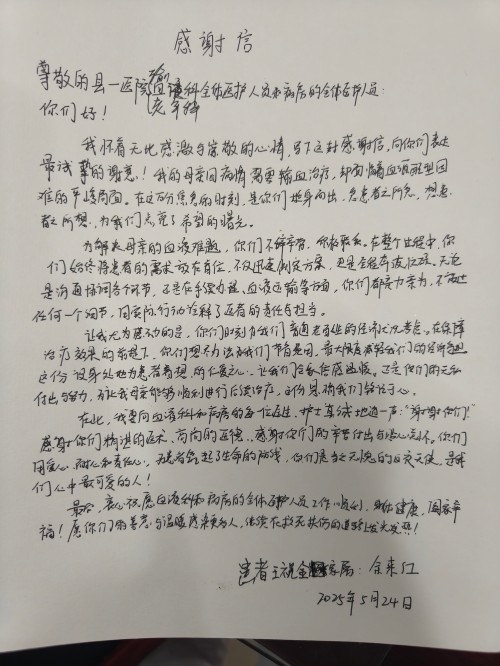 感谢信
尊敬的县一医院输血科全体医护人员和病房的全体医护人员:
你们好!
我怀着无比感激与崇敬的心情,写下这封感谢信,向你们表达
最诚挚的谢意!我的母亲因病情需要输血治疗,却面临血液配型困
难的严峻局面,在这万分焦急的时刻,是你们挺身而出,急患者之所急,想患
者之所想,为我们点亮了希望的曙光。
为解决母亲的血液难题,你们不辞辛劳,在整个过程中,你
们始终将患者的需求放在首位,不仅迅速制定方案,更是全程
是沟通协调各个环节,还是在血液运输等方面,你们都亲力亲为,不放过
任何一个细节,用实际行动诠释了医者的责任与担当。
让我尤为感动的是,你们时刻为我们普通老百姓的经济状况考虑。在保障
治疗效果的前提下,你们想尽办法为我们节省费用,最大限度减轻我们的经济负担
这份设身处地为患者着想的仁爱之心,让我们全家倍感温暖。正是你们的无私
付出与努力,才让我母亲能够顺利进行后续治疗,这份恩情我们铭记于心。
在此,我要向血液科和病房的每一位医生、护士真诚地道一声:“谢谢你们!”
感谢你们精湛的医术、高尚的医德,感谢你们的辛苦付出与悉心照料。你们
用爱心、耐心和责任心,为患者筑起了生命的防线,你们是当之无愧的白衣天使,是我
们心中最可爱的人!
最后,衷心祝愿血液科和病房的全体医护人员工作顺利,身体健康,阖家幸
福!愿你们的善意与温暖感染更多人,继续在救死扶伤的道路上发光发热!
患者王祝金家属:余来红
2025年5月24日